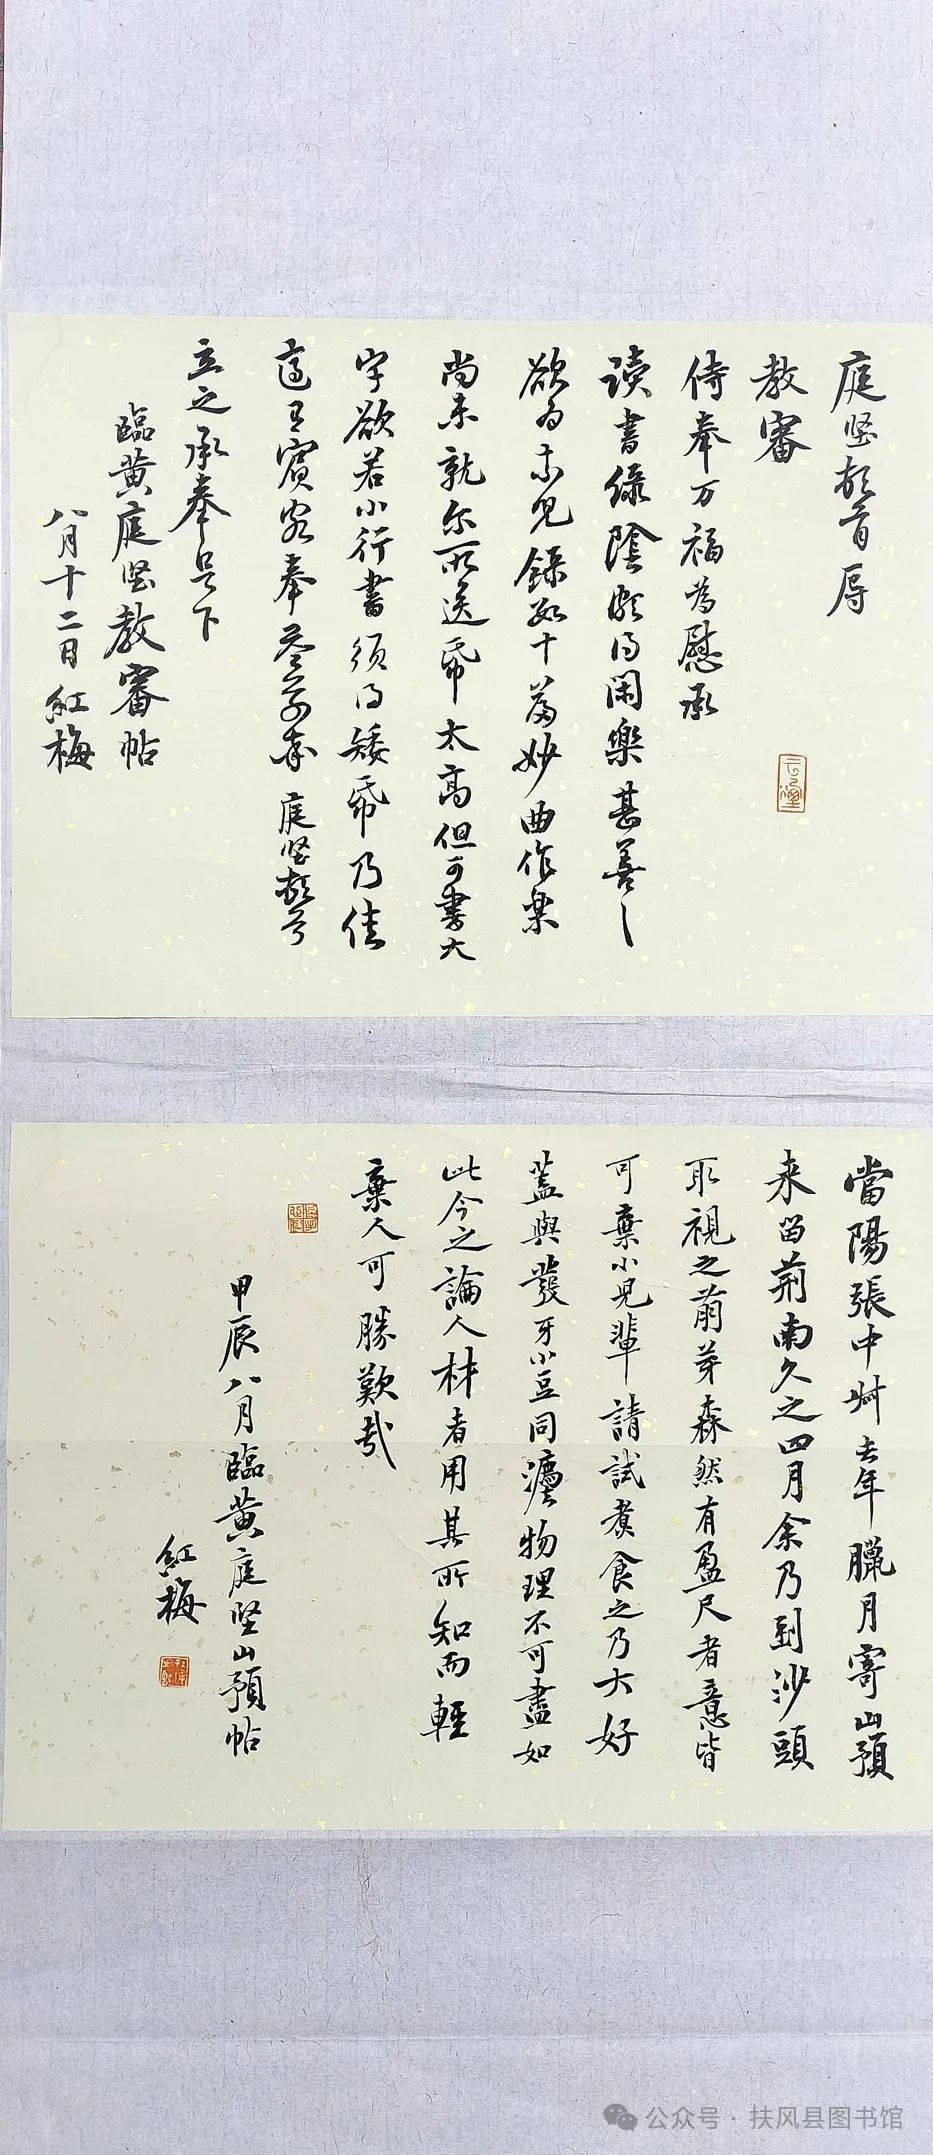 庭坚顿首辱
教審
侍奉万福為慰承
读書绿陰頗得闲樂甚善〻
欲为求児録数十篇妙曲作樂
尚未就尔所送紙太高但可書大
字欲若小行書须得矮紙乃佳
適有賓客奉答草率 庭坚顿首
立之承奉足下
臨黄庭坚教審帖
八月十二日 紅梅
當陽張中叔去年臘月寄山預
来留荊南久之四月余乃到沙頭
取視之萠芽森然有盈尺者意皆
可棄小児輩請試煮食之乃大好
蓋與發牙小豆同灋物理不可盡如
此今之論人材者用其所知而輕
棄人可勝歎哉
甲辰八月臨黄庭坚山預帖
紅梅
公众号·扶风县图书馆